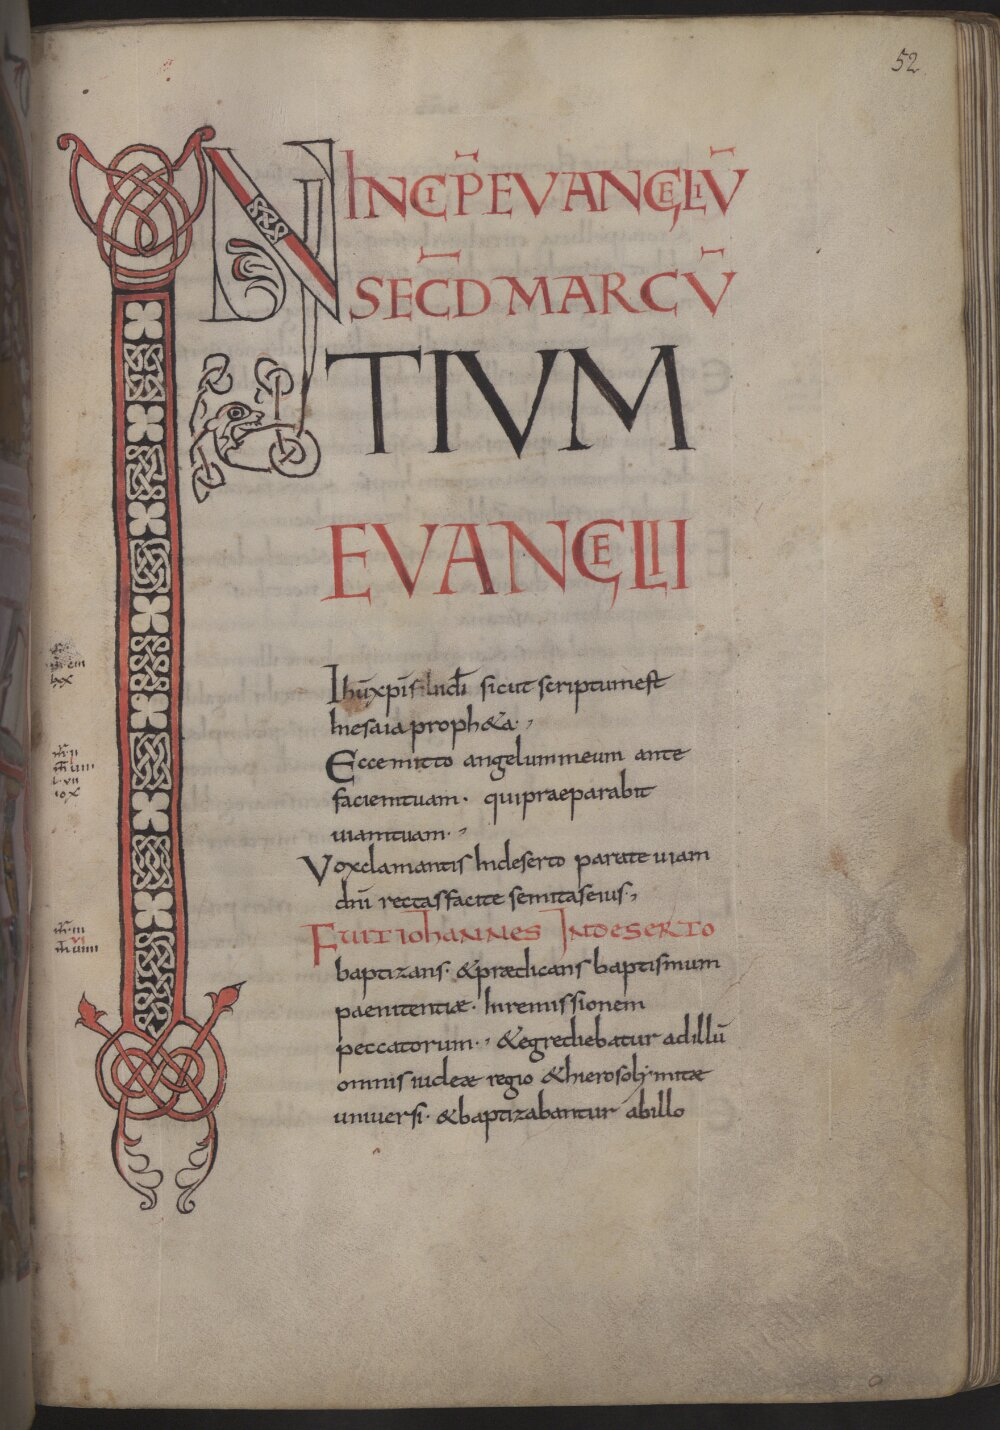 52
INCIP̄ EVANGELIV̄
SEC̄D MARCV̄
INI
TIVM
EVANGELII
Ihū xpī filii dī sicut scriptum est
In esaia proph&a·,
Ecce mitto angelum meum ante
faciem tuam· qui praeparabit
uiam tuam·,
Vox clamantis In deserto parate uiam
dn̄i rectas facite semitas eius·,
FUIT IOHANNES IN DESERTO
baptizans· & praedicans baptismum
paenitentiæ· In remissionem
peccatorum·, & egrediebatur ad illū
omnis iudeæ regio & hierosolymitæ
uniuersi· & baptizabantur ab illo